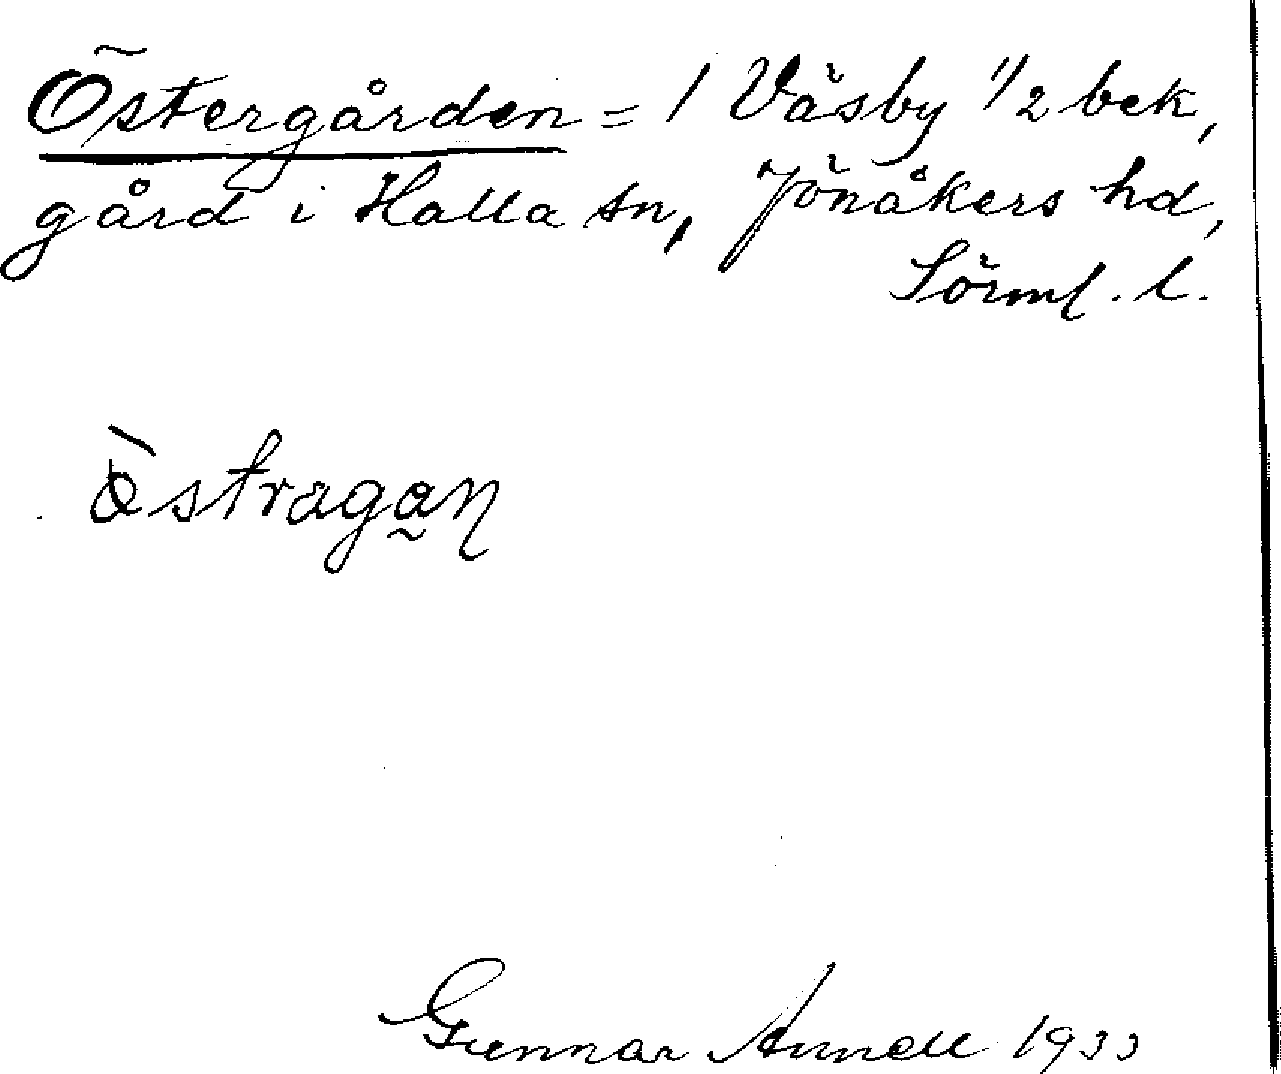 Östergården = 1 Väsby 1/2 bek,
gård i Halla sn, Jönåkers hd,
Sörml. l.
östragan
Gunnar 1933